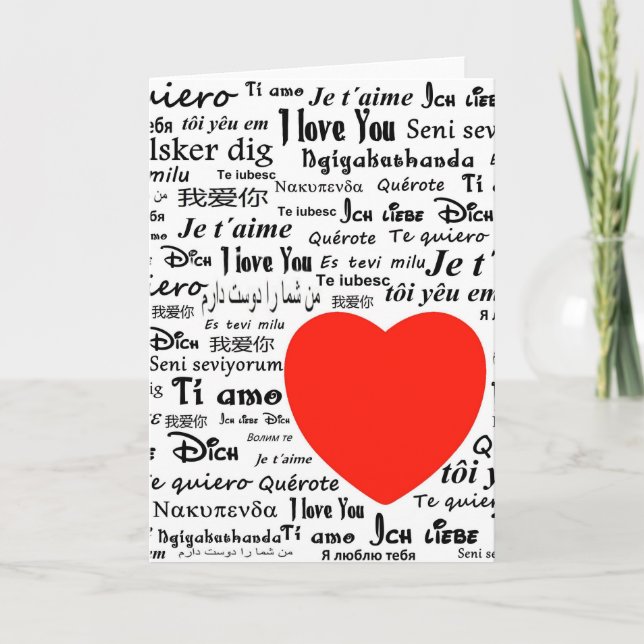 quiero Ti amo Je t´aime Ich liebe
ебя tôi yêu em I love You Seni sevi
lsker dig Ngiyakuthanda
milu Te iubesc Nakupenda Quérote Ti a
من 我爱你 Te iubesc Ich liebe Dich
Je t´aime Quérote Te quiero
Dich I love You Es tevi milu Je t´a
iero من شما را دوست دارم Te iubesc tôi yêu em
我爱你 Es tevi milu 我爱你 Я л
Dich 我爱你
Seni seviyorum
ig Ti amo
我爱你 Ich liebe Dich
Dich Волим те
Je t´aime tôi yê
Te quiero Quérote Te quiero
Nakupenda I love You
Ngiyakuthanda Ti amo Ich liebe
em من شما را دوست دارم Я люблю тебя Seni seviyor